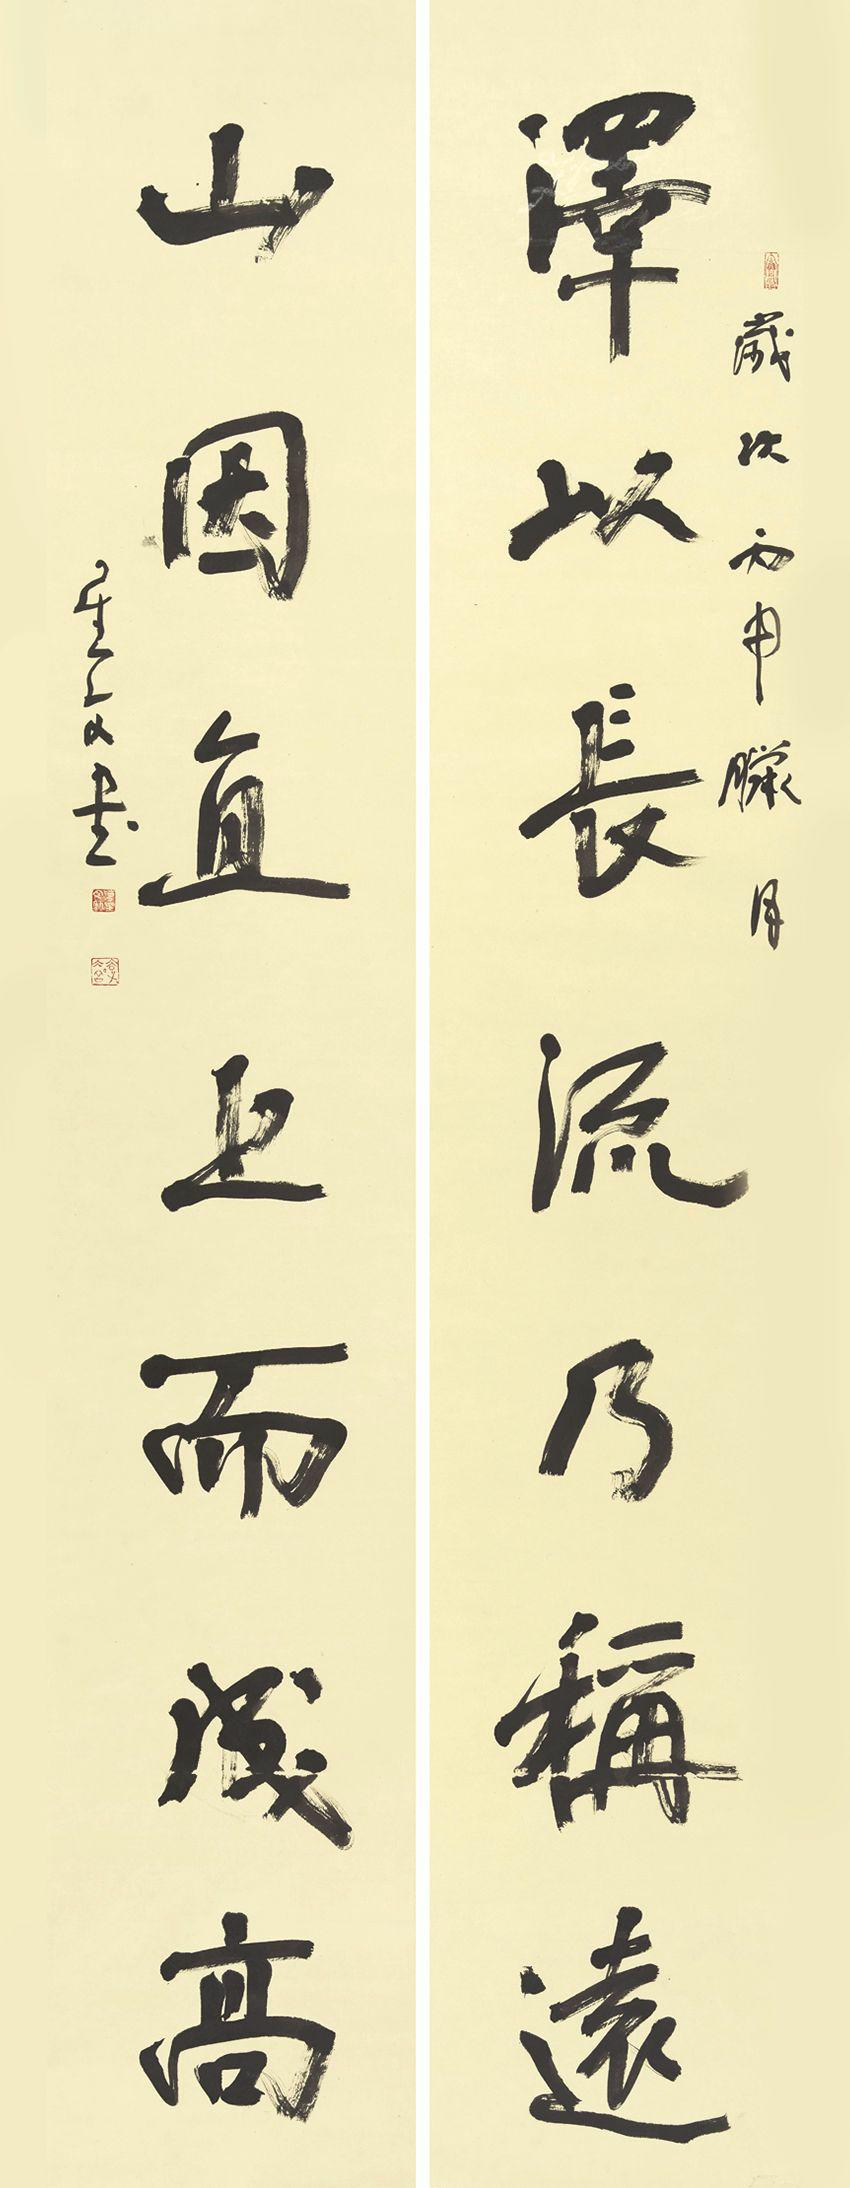 歲次丙申臘月
澤以長流乃稱遠
山因直上而成高